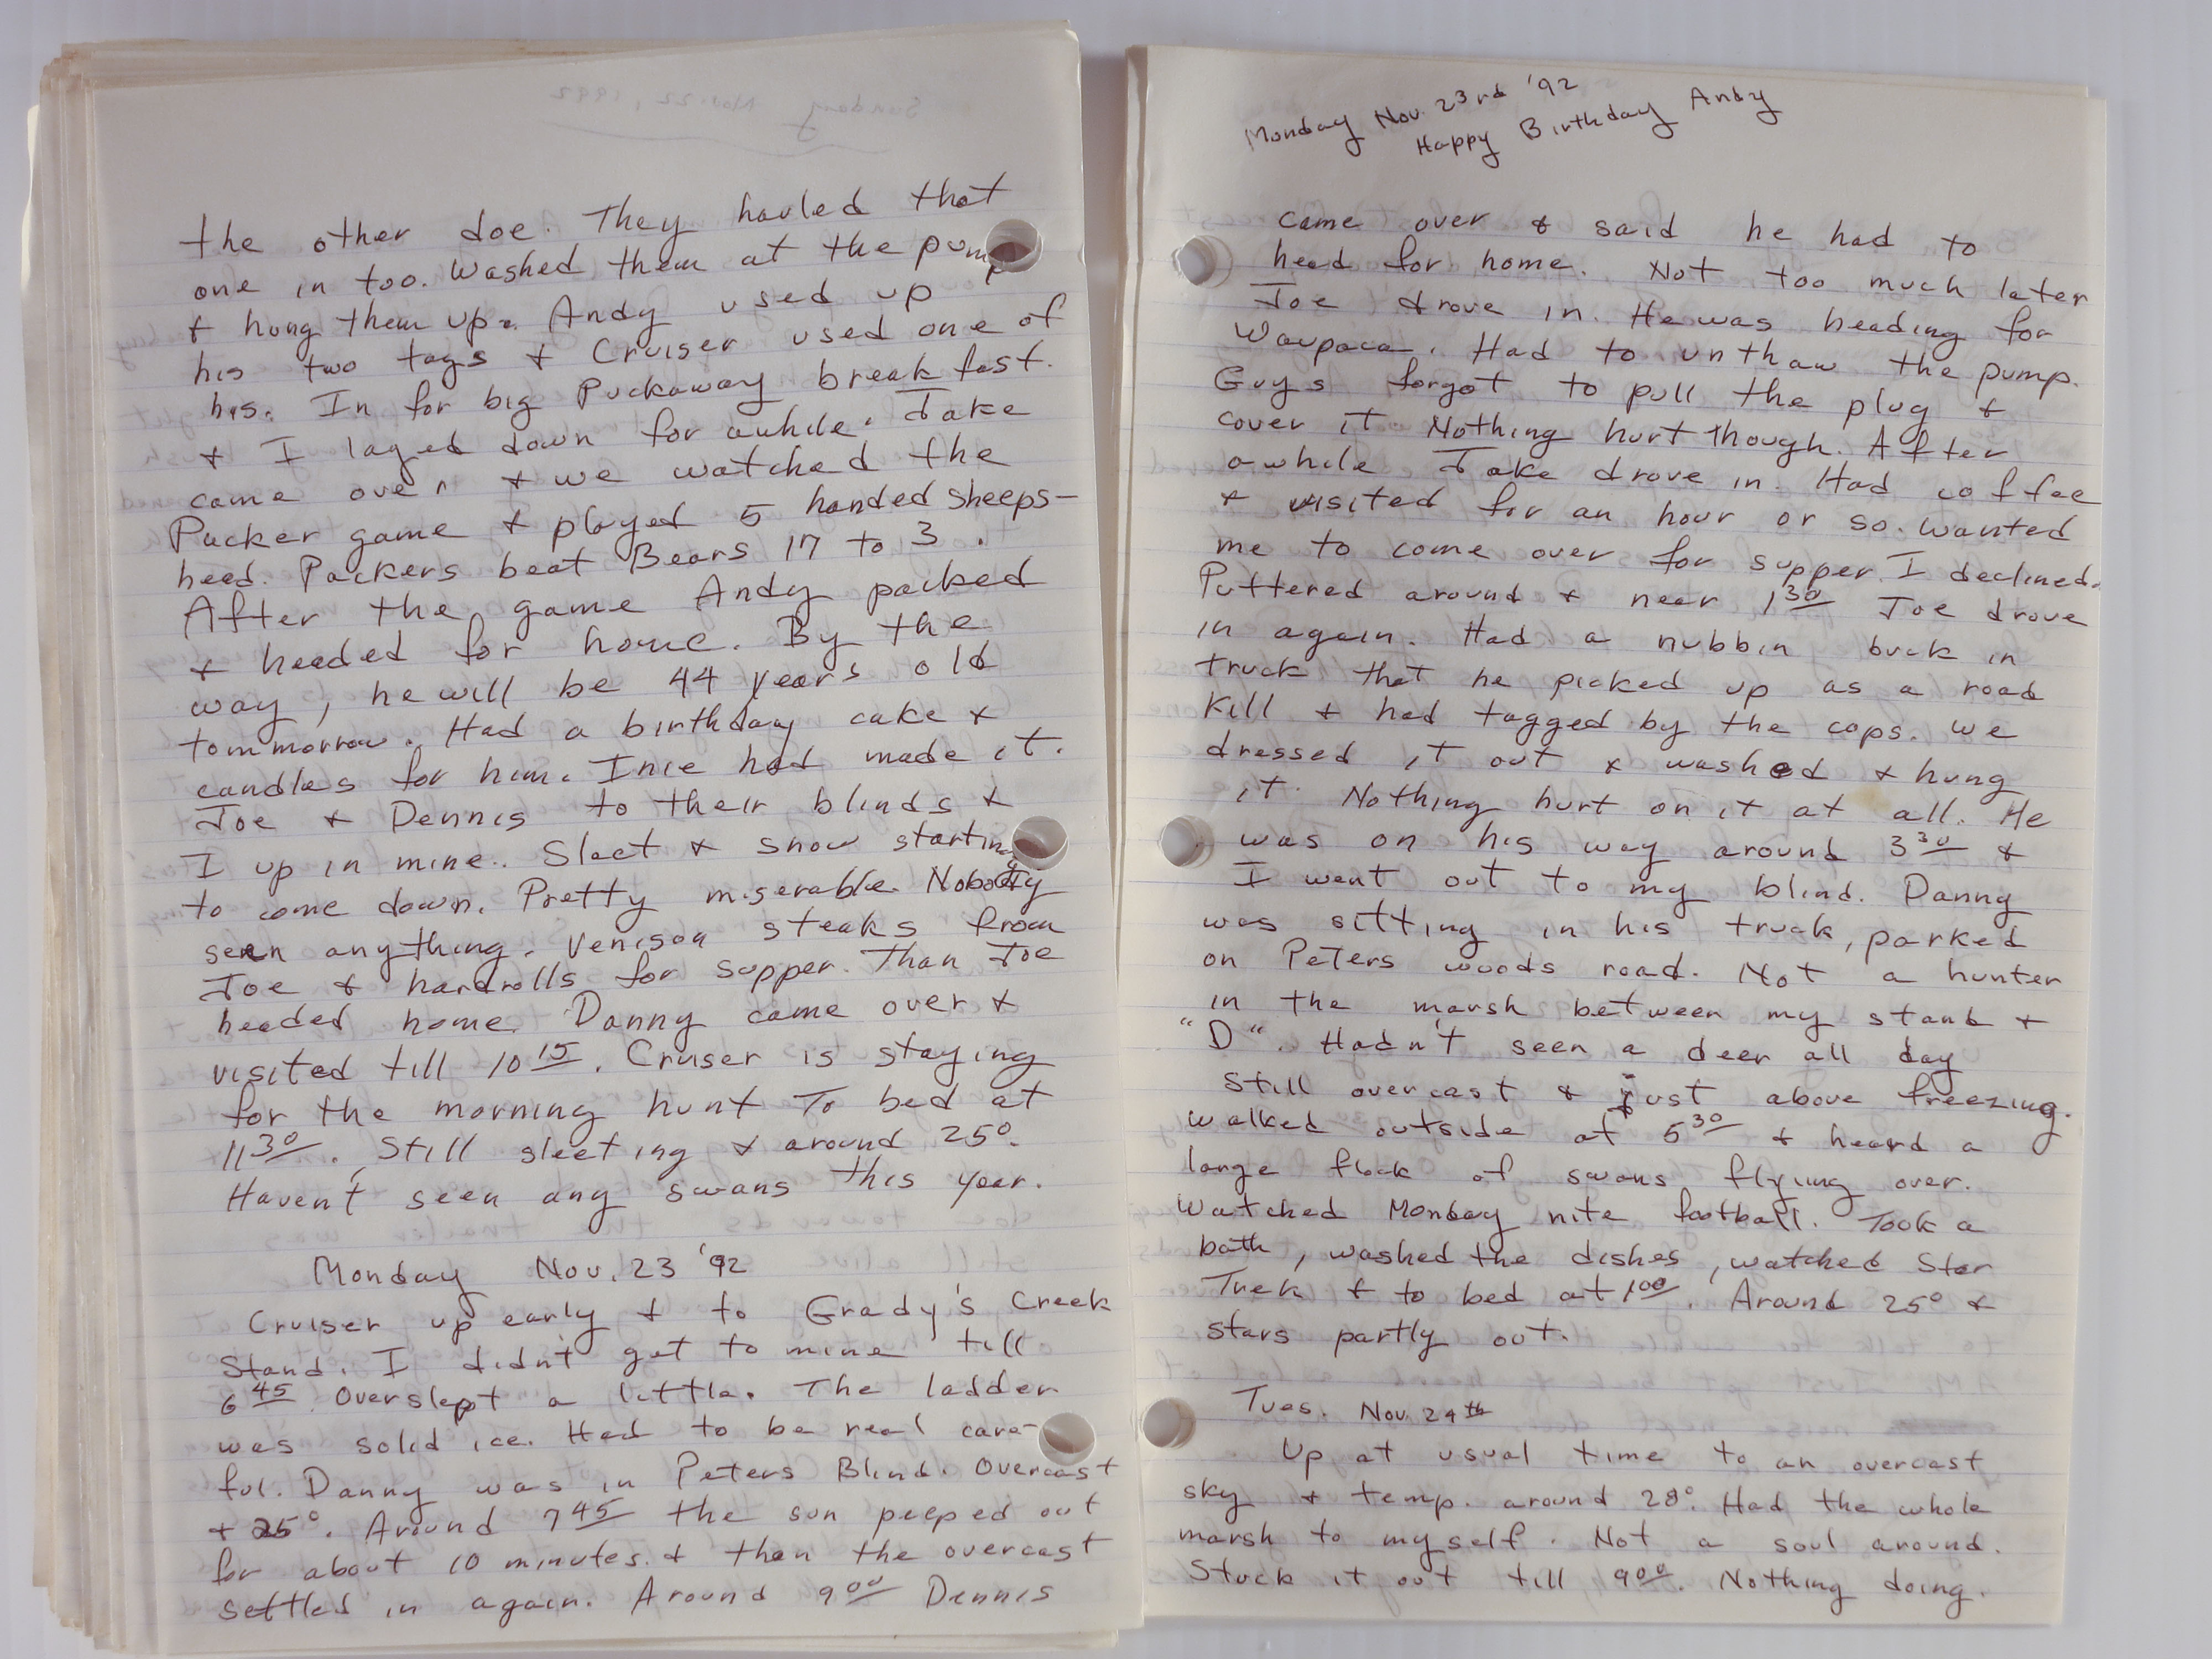 the other doe. They hauled that
one in too. Washed them at the pump
& hung them up. Andy used up
his two tags & Cruiser used one of
his. In for big Puckaway breakfast.
& I layed down for awhile. Jake
came over & we watched the
Packer game & played 5 handed sheeps-
head. Packers beat Bears 17 to 3.
After the game Andy packed
& headed for home. By the
way, he will be 44 years old
tommorrow. Had a birthday cake &
candles for him. Inie had made it.
Joe & Dennis to their blinds &
I up in mine. Sleet & snow starting
to come down. Pretty miserable. Nobody
seen anything. Venison steaks from
Joe & hardrolls for supper. Than Joe
headed home. Danny came over &
visited till 10 15. Cruiser is staying
for the morning hunt To bed at
11 30. Still sleeting & around 25°.
Haven't seen any swans this year.
Monday Nov. 23 '92
Cruiser up early & to Grady's Creek
Stand. I didn't get to mine till
6 45. Overslept a little. The ladder
was solid ice. Had to be real care-
ful. Danny was in Peters Blind. Overcast
& 25°. Around 7 45 the sun peeped out
for about 10 minutes & then the overcast
settled in again. Around 9 00 Dennis
Monday Nov. 23rd '92
Happy Birthday Andy
came over & said he had to
head for home. Not too much later
Joe drove in. He was heading for
Waupaca. Had to unthaw the pump.
Guys forgot to pull the plug &
cover it Nothing hurt though. After
awhile Jake drove in. Had coffee
& visited for an hour or so. Wanted
me to come over for supper. I declined.
Puttered around & near 1 30 Joe drove
in again. Had a nubbin buck in
truck that he picked up as a road
kill & had tagged by the cops. We
dressed it out & washed & hung
it. Nothing hurt on it at all. He
was on his way around 3 30 &
I went out to my blind. Danny
was sitting in his truck, parked
on Peters woods road. Not a hunter
in the marsh between my stand &
"D". Hadn't seen a deer all day
Still overcast & just above freezing.
Walked outside at 5 30 & heard a
large flock of swans flying over.
Watched Monday nite football. Took a
bath, washed the dishes, watched Star
Trek & to bed at 1 00. Around 25° &
stars partly out.
Tues. Nov. 24th
Up at usual time to an overcast
sky & temp. around 28°. Had the whole
marsh to myself. Not a soul around.
Stuck it out till 9 00. Nothing doing.